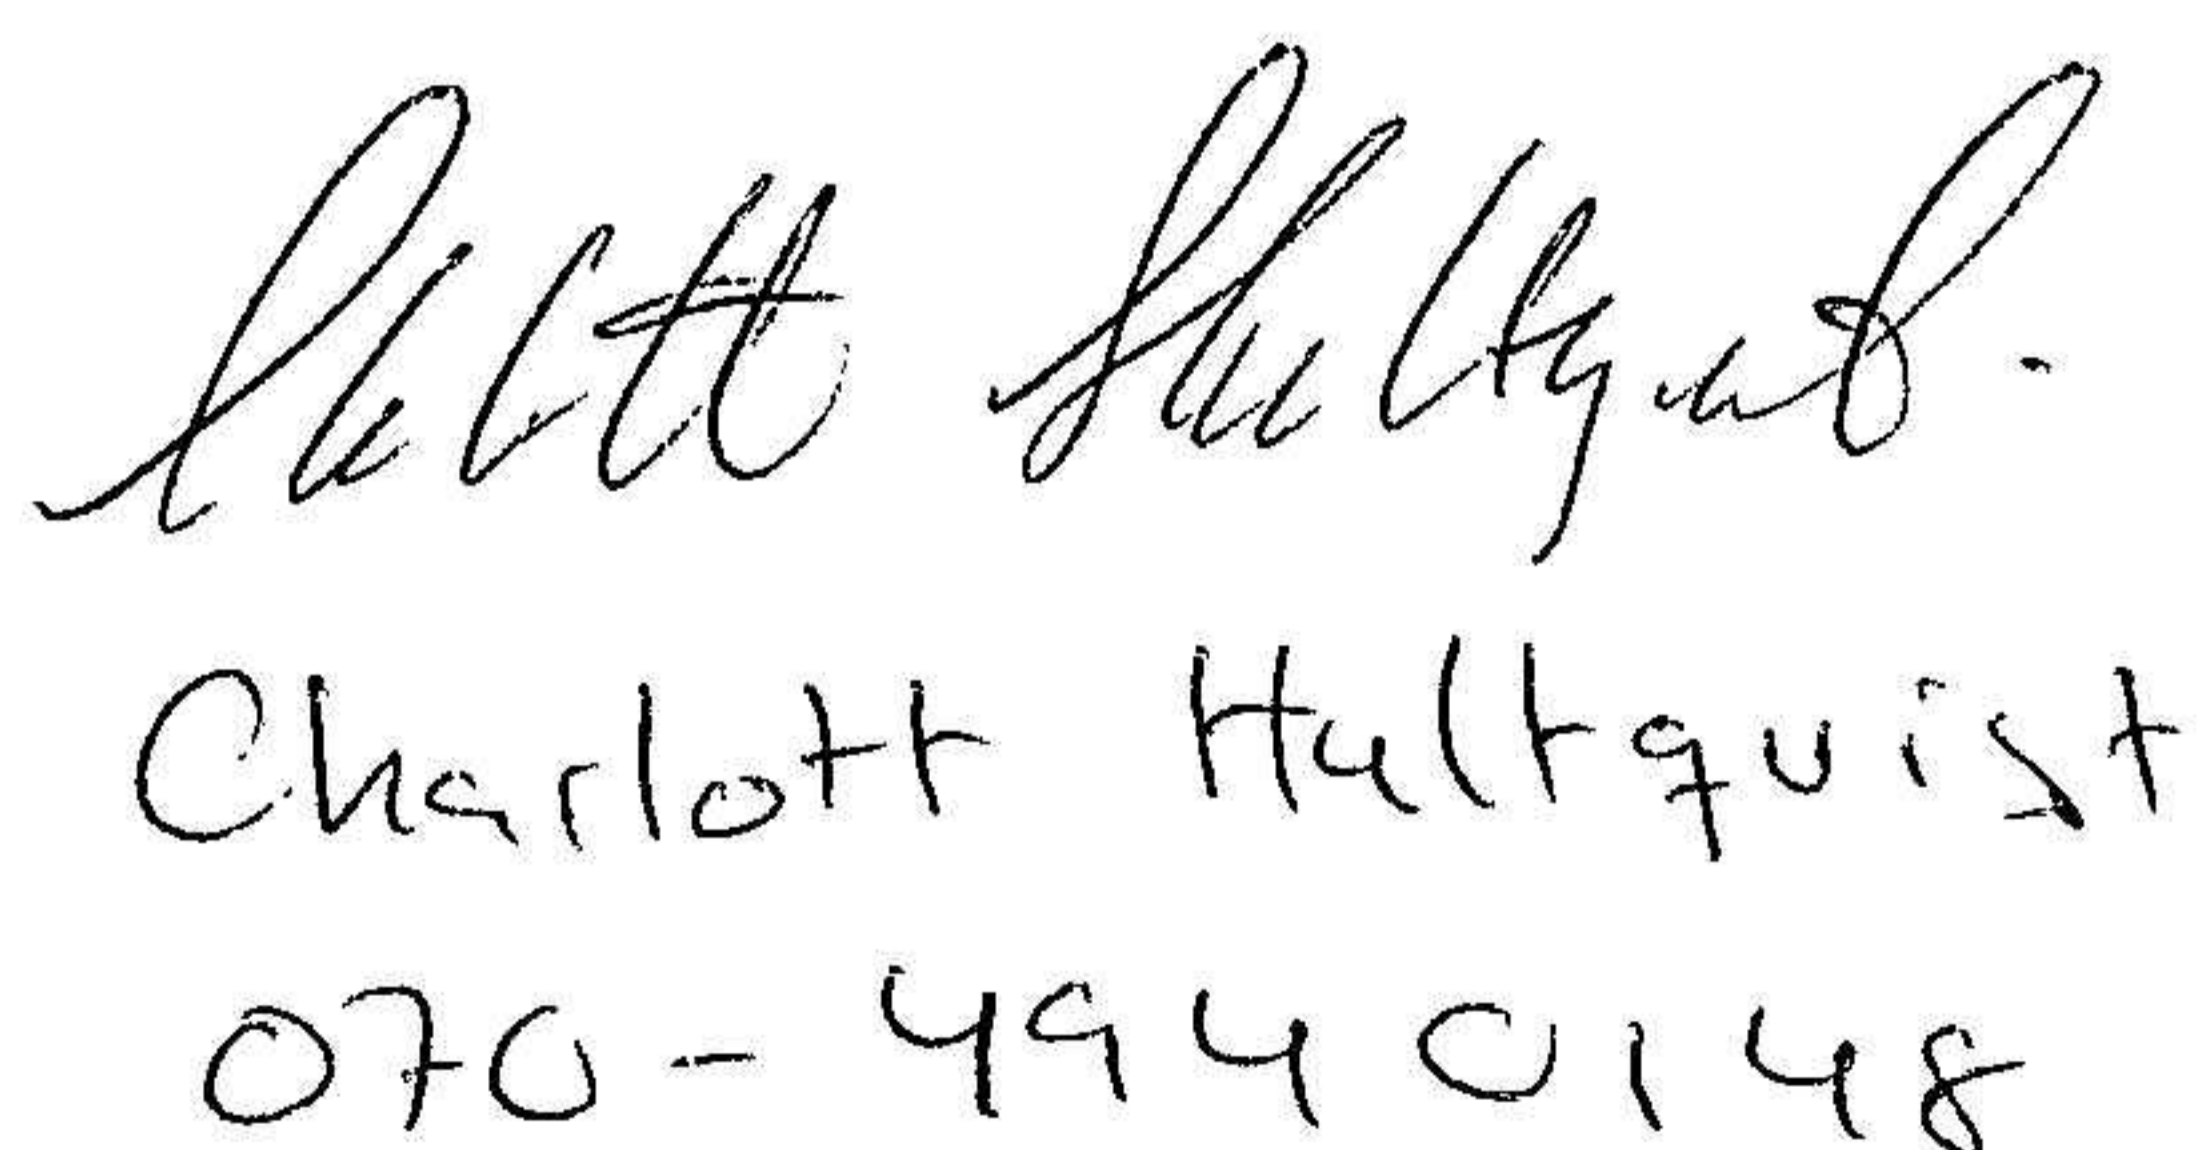 Charlott Hultquist
Charlott Hultquist
070-4940148